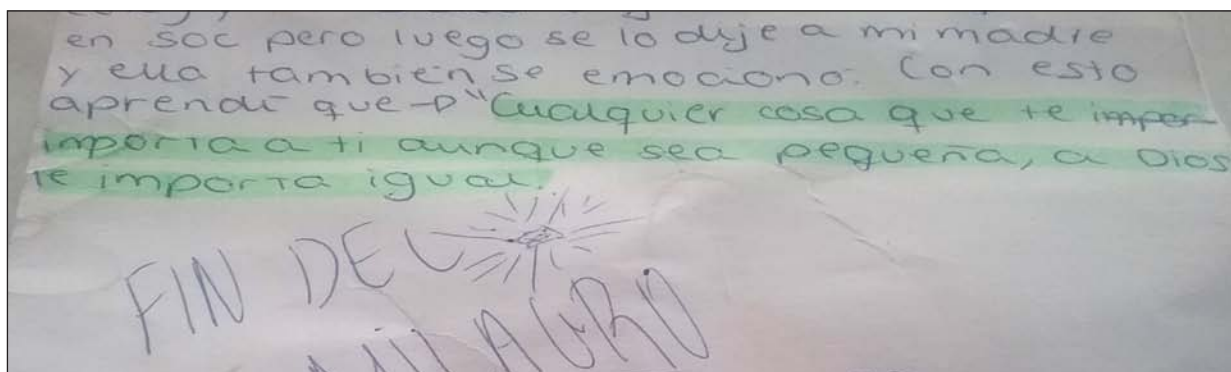 en soc pero luego se lo dije a mi madre
y ella también se emociono. Con esto
aprendí que → "Cualquier cosa que te impor
importa a ti aunque sea pequeña, a Dios
le importa igual.
FIN DEL
MILAGRO